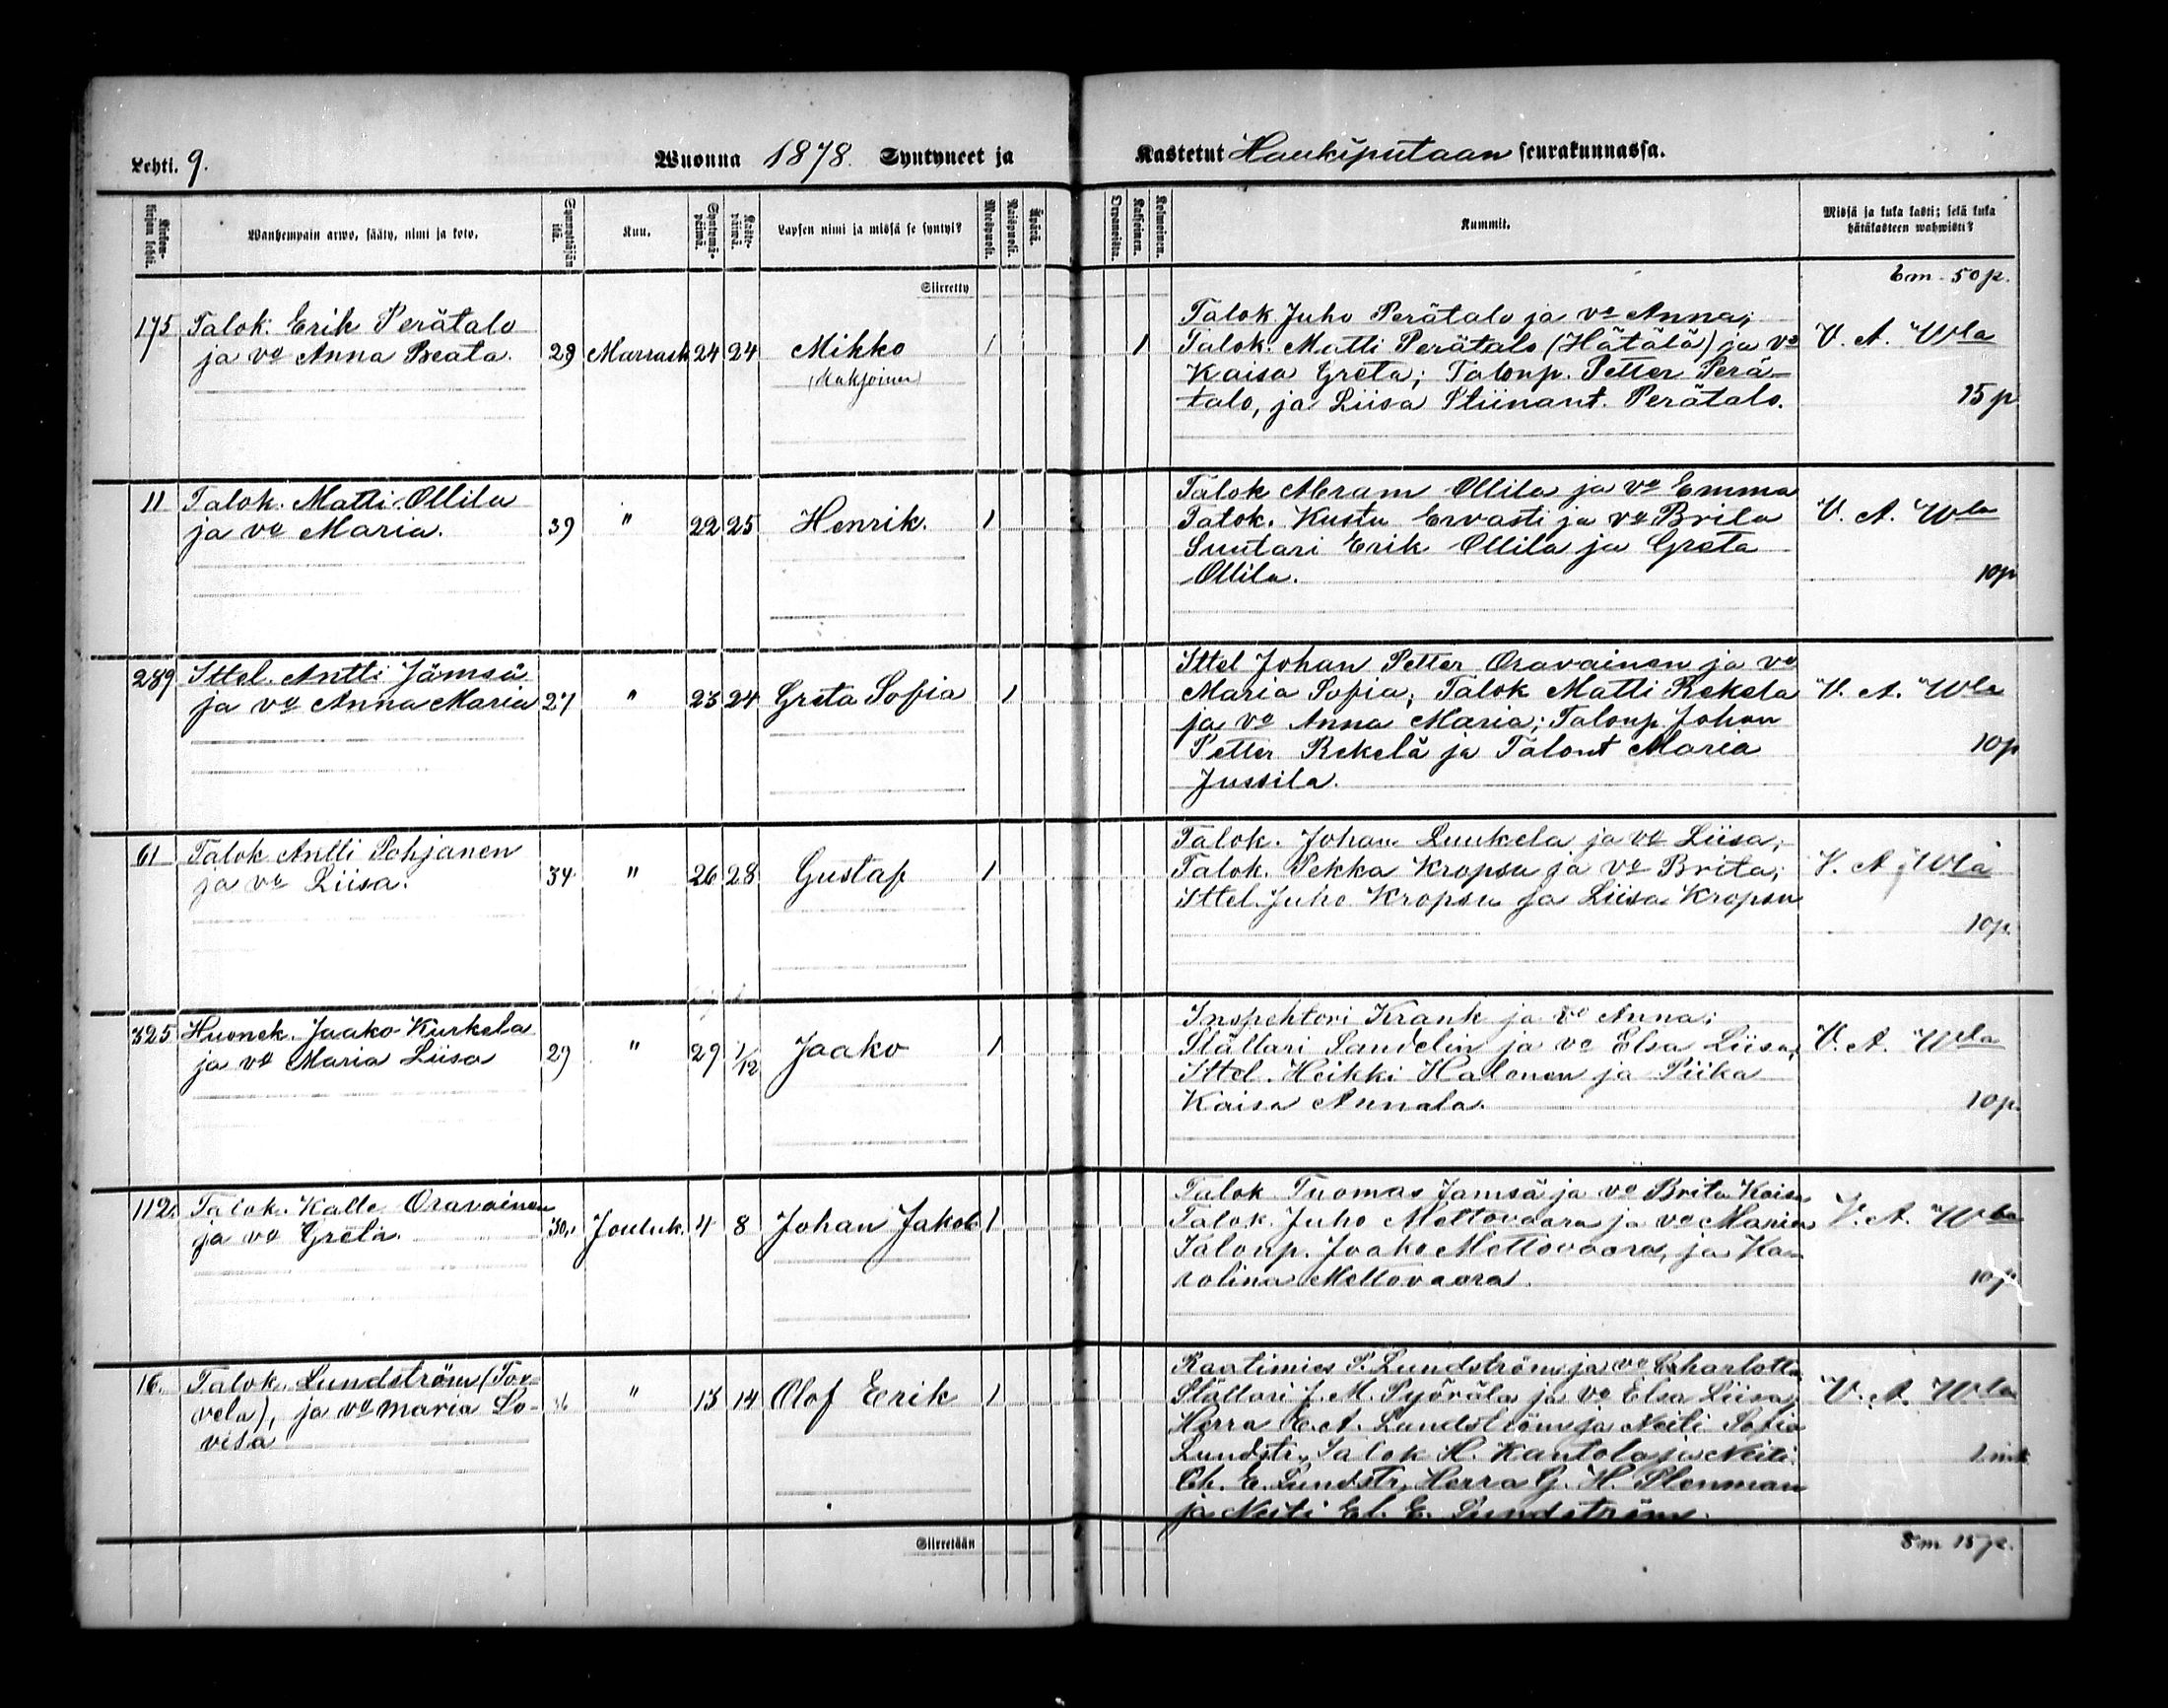 Lehti. 9.
Wuonna 1878. Syntyneet ja
Kastetut Haukiputaan seurakunnassa.
Kirkonkirjan lehti.
Wanhempain arwo, sääty, nimi ja koto.
Synnyttäjän ikä.
Kuu.
Syntymäpäiwä.
Kastepäiwä.
Lapsen nimi ja missä se syntyi?
Miespuoli.
Naispuoli.
Äpärä.
Kaksoinen.
Kolmoinen.
Kummit.
Missä ja kuka kasti; sekä kuka
hätäkasteen wahwisti?
Siirretty
6m 50p.
175 Talok. Erik Perätalo
ja vo Anna Beata. 29 Marrask 24 24 Mikko 1
(Kaksoinen)
1 Talok Juho Perätalo ja vo Anna;
Talok. Matti Perätalo (Hätälä) ja vo
Kaisa Greta; Talonp. Petter Perä-
talo, ja Liisa Stiinant. Perätalo.
V. A. Wla
25p
11 Talok. Matti Ollila
ja vo Maria. 39 " 22 25 Henrik. 1
Talok Abram Ollila ja vo Emma
Talok. Kustu Ervasti ja vo Brita
Suutari Erik Ollila ja Greta
Ollila.
V. A. Wla
10p
289 Ittel. Antti Jämsä
ja vo Anna Maria 27 " 23 24 Greta Sofia 1
Ittel Johan Petter Oravainen ja vo
Maria Sofia; Talok Matti Rekela
ja vo Anna Maria; Talonp. Johan
Petter Rekelä ja Talont Maria
Jussila.
V. A. Wla
10p
61 Talok Antti Pohjanen
ja vo Liisa. 34 " 26 28 Gustaf 1
Talok. Johan Luukela ja vo Liisa;
Talok. Pekka Kropsu ja vo Brita;
Ittel. Juho Kropsu ja Liisa Kropsu
V. A. Wla
10p.
325 Huonek. Jaako Kurkela
ja vo Maria Liisa 29 " 29 1/12 Jaako 1
Inspehtori Krank ja vo Anna;
Ställari Sandelin ja vo Elsa Liisa;
Ittel. Heikki Halonen ja Piika
Kaisa Annala.
V. A. Wla
10p.
112. Talok. Kalle Oravainen
ja vo Greta. 30. Jouluk. 4 8 Johan Jakob 1
Talok Tuomas Jamsä ja vo Brita Kaisa
Talok. Juho Mettovaara ja vo Maria
Talonp. Jaako Mettovaara, ja Ka-
rolina Mettovaara.
V. A. Wla
10p
16. Talok. Lundström (Tor-
vela), ja vo Maria Lo-
visa " 13 14 Olof Erik 1
Raatimies P. Lundström ja vo Charlotta
Ställari J. M. Pyörälä ja vo Elsa Liisa;
Herra E. A. Lundström ja Neiti Sofia
Lundstr., Talok H. Kantola ja Neiti
Ch. E. Lundstr, Herra G. H. Plenman
ja Neiti El. E. Lundström.
V. A. Wla
1 mk
Siirretään
8m 15p.